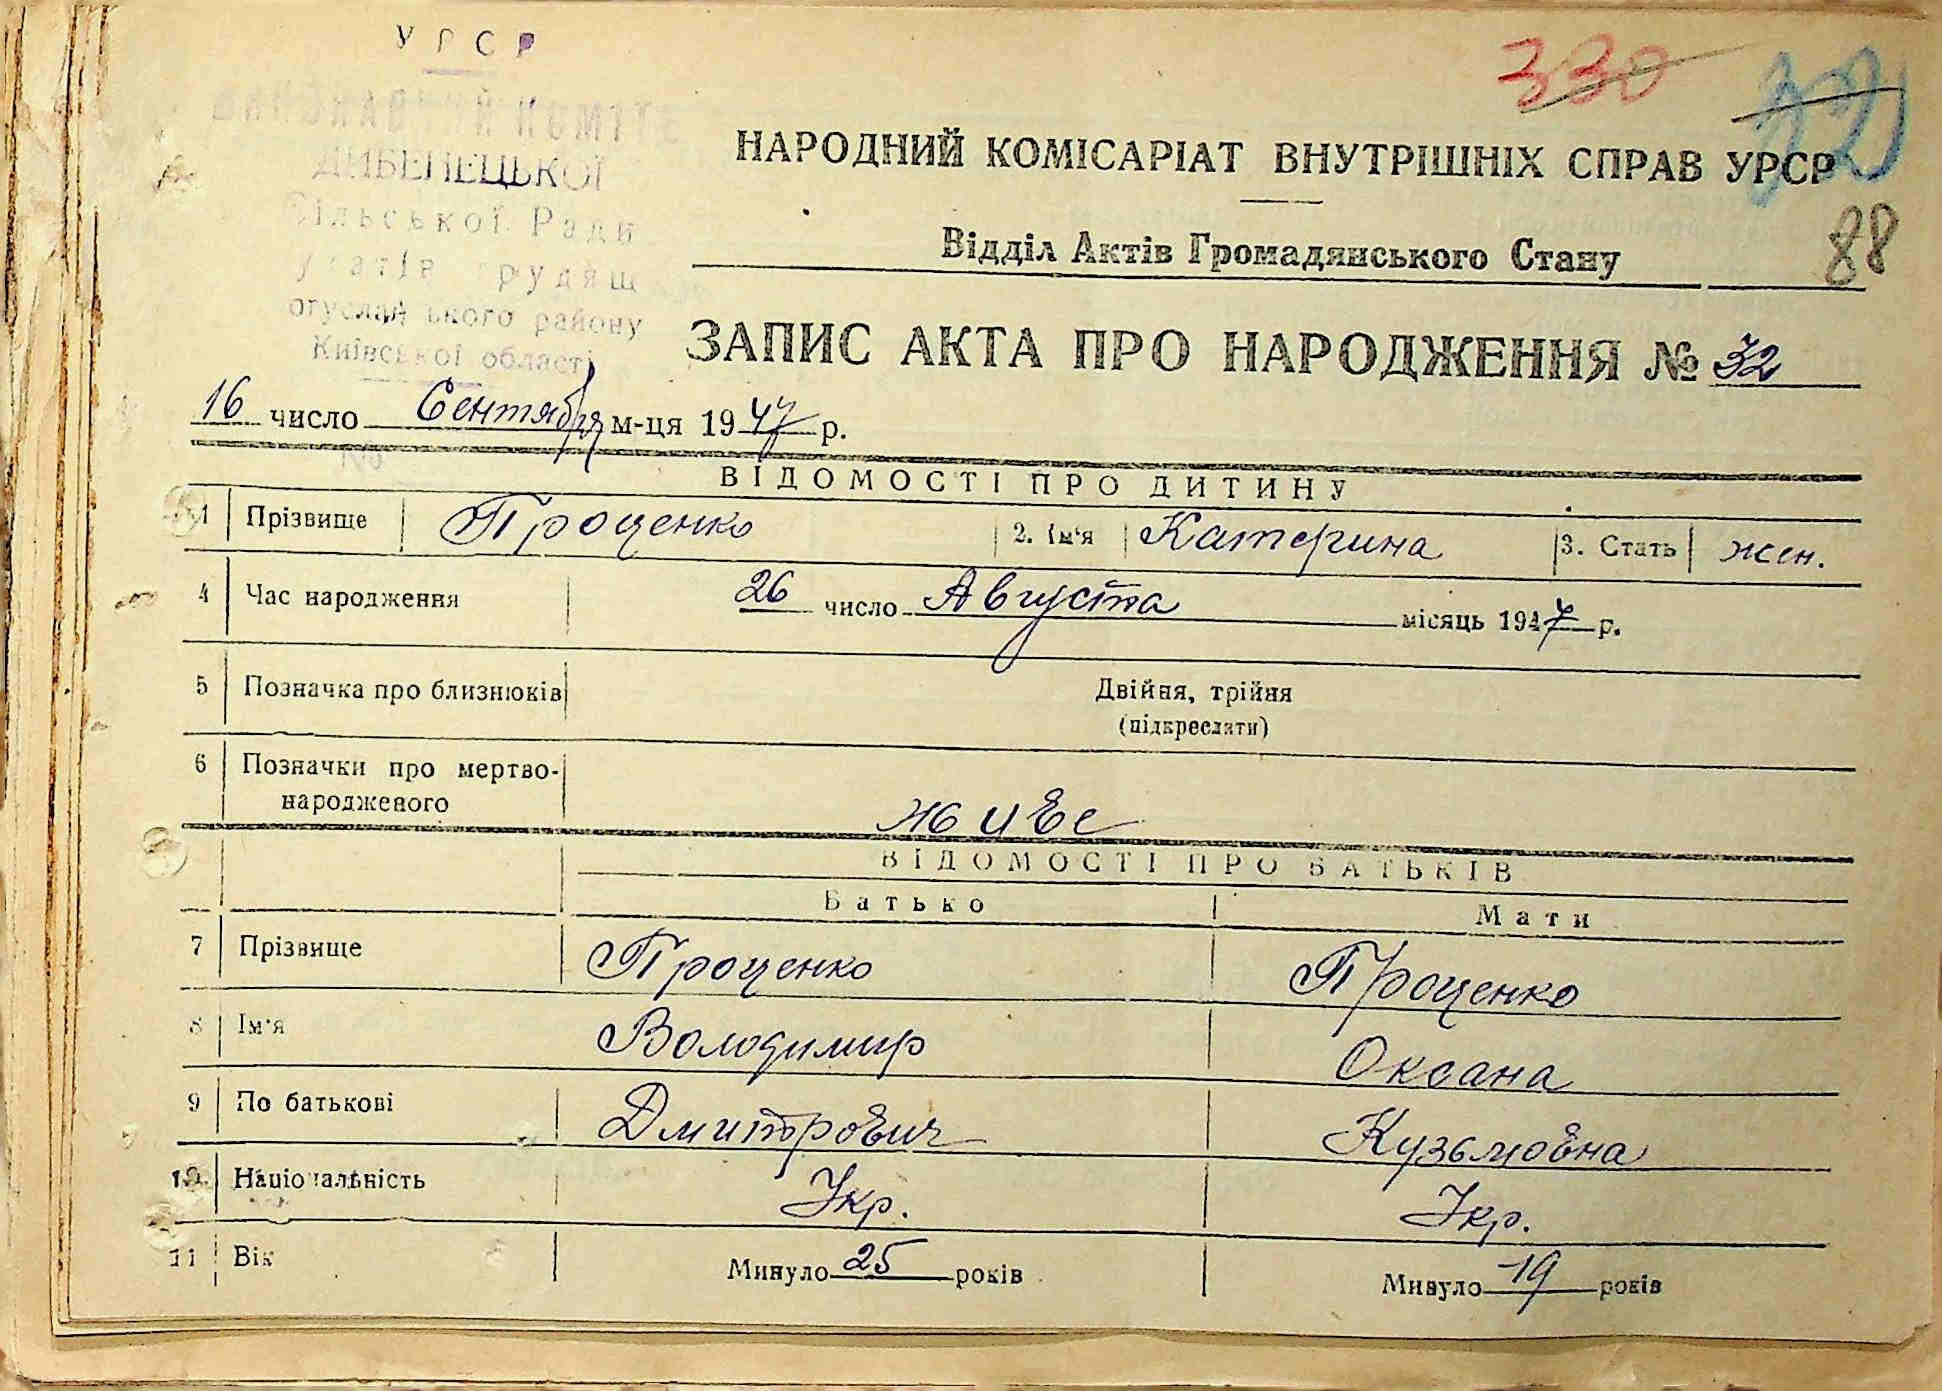 УРСР
ВИКОНАВЧИЙ КОМІТЕ
ДИБЕНЕЦЬКОЇ
Сільської Ради
огуславського району
Київської області
330
88
НАРОДНИЙ КОМІСАРІАТ ВНУТРІШНІХ СПРАВ УРСР
Відділ Актів Громадянського Стану
ЗАПИС АКТА ПРО НАРОДЖЕННЯ № 32
16 число Сентября м-ця 1947 р.
ВІДОМОСТІ ПРО ДИТИНУ
1 Прізвище Проценко 2. Ім'я Катерина 3. Стать жен.
4 Час народження 26 число Августа місяць 1947 р.
5 Позначка про близнюків Двійня, трійня
(підкреслити)
6 Позначки про мертво-
народженого живе
ВІДОМОСТІ ПРО БАТЬКІВ
Батько Мати
7 Прізвище Проценко Проценко
8 Ім'я Володимир Оксана
9 По батькові Дмитрович Кузьмовна
10 Національність Укр. Укр.
11 Вік Минуло 25 років Минуло 19 років